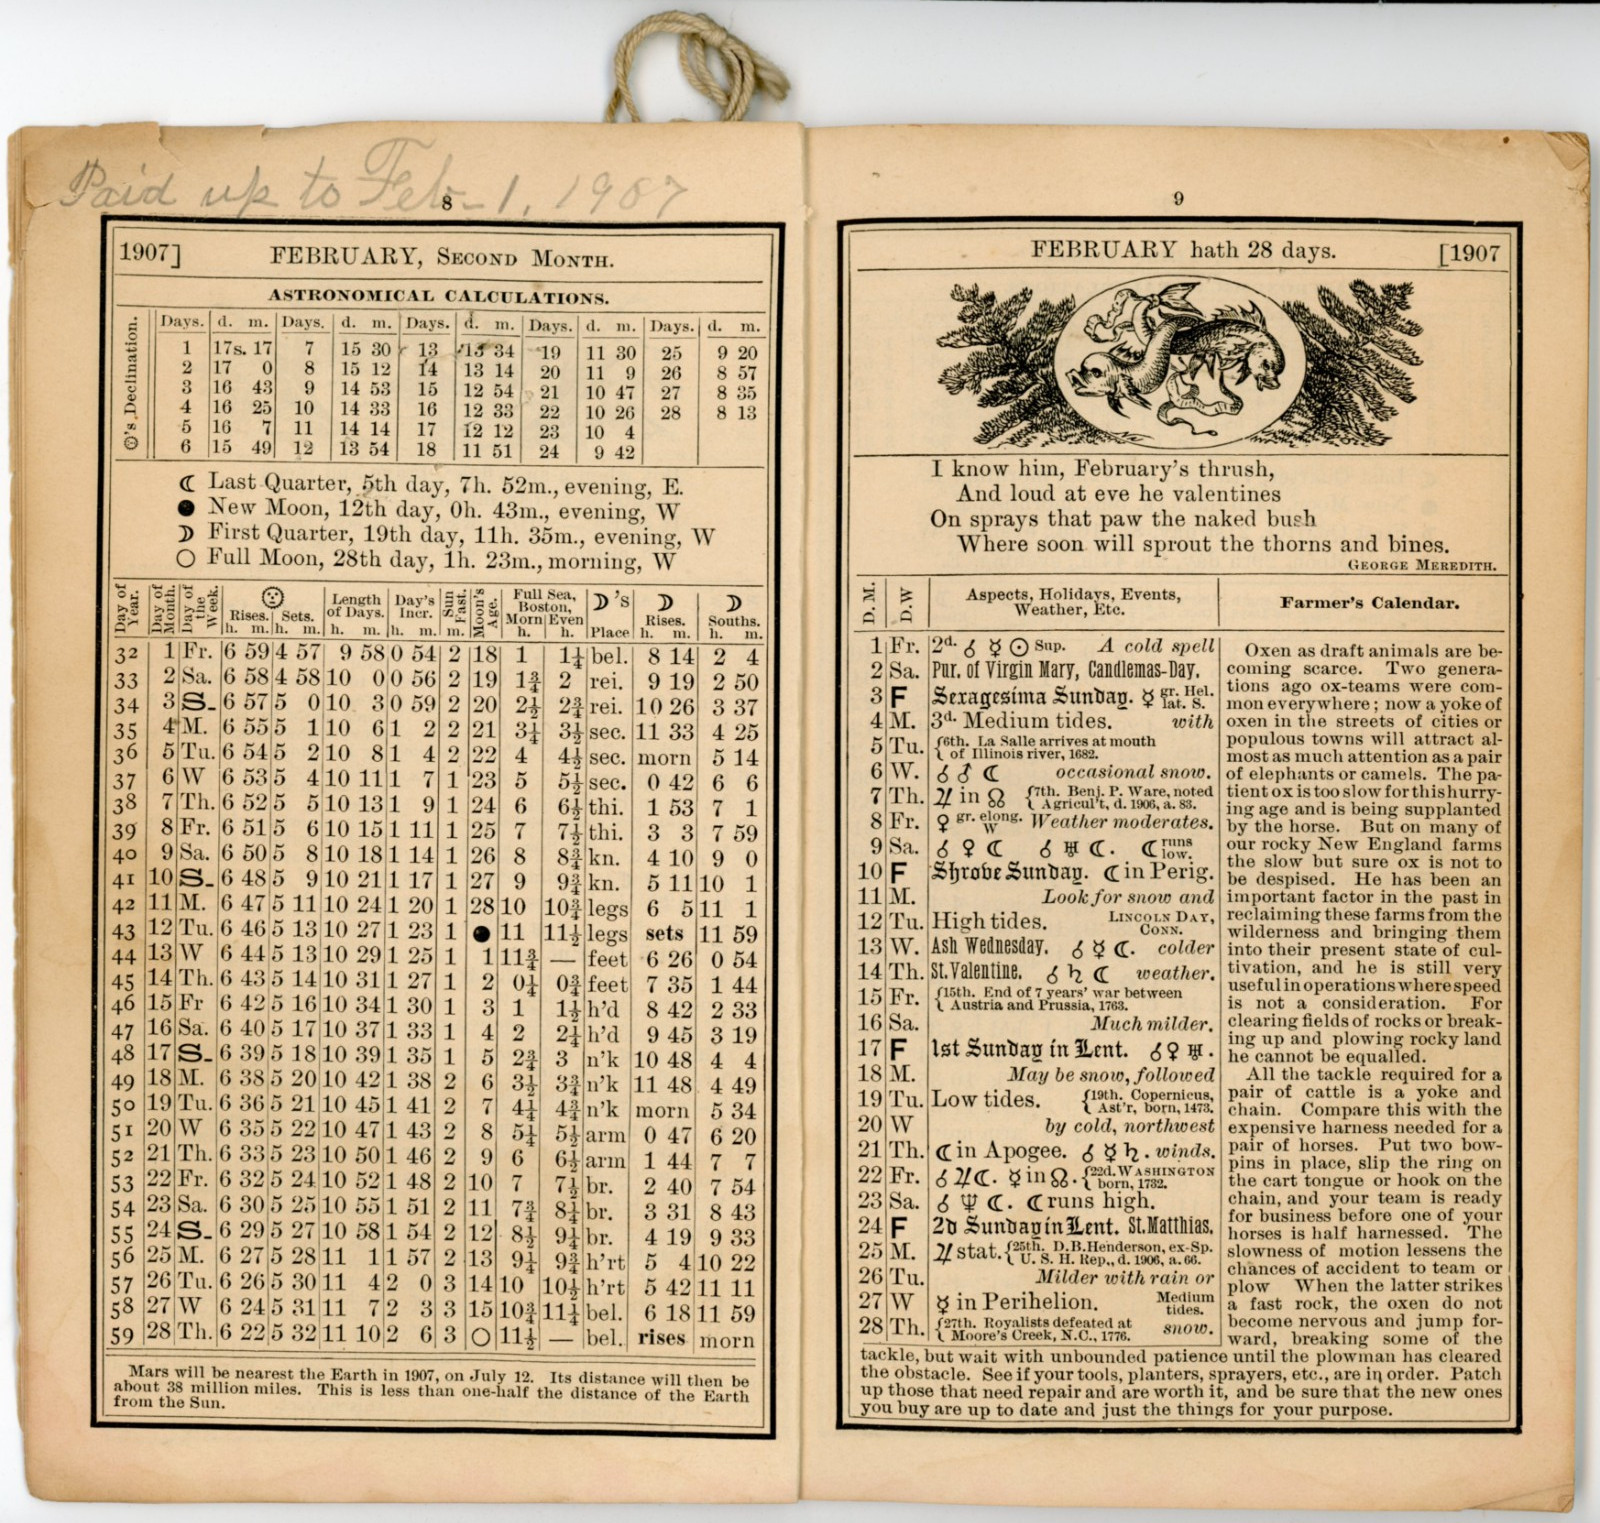 Paid up to Feb- 1, 1907
8
1907] FEBRUARY, SECOND MONTH.
ASTRONOMICAL CALCULATIONS.
☉'s Declination.
Days. d. m. Days. d. m. Days. d. m. Days. d. m. Days. d. m.
1 17s. 17 7 15 30 13 13 34 19 11 30 25 9 20
2 17 0 8 15 12 14 13 14 20 11 9 26 8 57
3 16 43 9 14 53 15 12 54 21 10 47 27 8 35
4 16 25 10 14 33 16 12 33 22 10 26 28 8 13
5 16 7 11 14 14 17 12 12 23 10 4
6 15 49 12 13 54 18 11 51 24 9 42
☾ Last Quarter, 5th day, 7h. 52m., evening, E.
● New Moon, 12th day, 0h. 43m., evening, W
☽ First Quarter, 19th day, 11h. 35m., evening, W
○ Full Moon, 28th day, 1h. 23m., morning, W
Day of Year. Day of Month. Day of the Week. ☉ Rises. Sets. h. m. h. m. Length of Days. h. m. Day's Incr. h. m. Sun Fast. m. Moon's Age. Full Sea, Boston, Morn Even h. h. ☽'s Place ☽ Rises. h. m. ☽ Souths. h. m.
32 1 Fr. 6 59 4 57 9 58 0 54 2 18 1 1¼ bel. 8 14 2 4
33 2 Sa. 6 58 4 58 10 0 0 56 2 19 1¾ 2 rei. 9 19 2 50
34 3 S. 6 57 5 0 10 3 0 59 2 20 2½ 2¾ rei. 10 26 3 37
35 4 M. 6 55 5 1 10 6 1 2 2 21 3¼ 3½ sec. 11 33 4 25
36 5 Tu. 6 54 5 2 10 8 1 4 2 22 4 4½ sec. morn 5 14
37 6 W 6 53 5 4 10 11 1 7 1 23 5 5½ sec. 0 42 6 6
38 7 Th. 6 52 5 5 10 13 1 9 1 24 6 6½ thi. 1 53 7 1
39 8 Fr. 6 51 5 6 10 15 1 11 1 25 7 7½ thi. 3 3 7 59
40 9 Sa. 6 50 5 8 10 18 1 14 1 26 8 8¾ kn. 4 10 9 0
41 10 S. 6 48 5 9 10 21 1 17 1 27 9 9¾ kn. 5 11 10 1
42 11 M. 6 47 5 11 10 24 1 20 1 28 10 10¾ legs 6 5 11 1
43 12 Tu. 6 46 5 13 10 27 1 23 1 ● 11 11½ legs sets 11 59
44 13 W 6 44 5 13 10 29 1 25 1 1 11¾ — feet 6 26 0 54
45 14 Th. 6 43 5 14 10 31 1 27 1 2 0¼ 0¾ feet 7 35 1 44
46 15 Fr 6 42 5 16 10 34 1 30 1 3 1 1½ h'd 8 42 2 33
47 16 Sa. 6 40 5 17 10 37 1 33 1 4 2 2¼ h'd 9 45 3 19
48 17 S. 6 39 5 18 10 39 1 35 1 5 2¾ 3 n'k 10 48 4 4
49 18 M. 6 38 5 20 10 42 1 38 2 6 3½ 3¾ n'k 11 48 4 49
50 19 Tu. 6 36 5 21 10 45 1 41 2 7 4¼ 4¾ n'k morn 5 34
51 20 W 6 35 5 22 10 47 1 43 2 8 5¼ 5½ arm 0 47 6 20
52 21 Th. 6 33 5 23 10 50 1 46 2 9 6 6½ arm 1 44 7 7
53 22 Fr. 6 32 5 24 10 52 1 48 2 10 7 7½ br. 2 40 7 54
54 23 Sa. 6 30 5 25 10 55 1 51 2 11 7¾ 8¼ br. 3 31 8 43
55 24 S. 6 29 5 27 10 58 1 54 2 12 8½ 9¼ br. 4 19 9 33
56 25 M. 6 27 5 28 11 1 1 57 2 13 9¼ 9¾ h'rt 5 4 10 22
57 26 Tu. 6 26 5 30 11 4 2 0 3 14 10 10½ h'rt 5 42 11 11
58 27 W 6 24 5 31 11 7 2 3 3 15 10¾ 11¼ bel. 6 18 11 59
59 28 Th. 6 22 5 32 11 10 2 6 3 ○ 11½ — bel. rises morn
Mars will be nearest the Earth in 1907, on July 12. Its distance will then be
about 38 million miles. This is less than one-half the distance of the Earth
from the Sun.
9
FEBRUARY hath 28 days. [1907
I know him, February's thrush,
And loud at eve he valentines
On sprays that paw the naked bush
Where soon will sprout the thorns and bines.
GEORGE MEREDITH.
D. M. D. W Aspects, Holidays, Events, Weather, Etc.
1 Fr. 2d. ☌ ☿ ☉ Sup. A cold spell
2 Sa. Pur. of Virgin Mary, Candlemas-Day.
3 F Sexagesima Sunday. ☿ gr. Hel. lat. S.
4 M. 3d. Medium tides. with
5 Tu. {6th. La Salle arrives at mouth of Illinois river, 1682.
6 W. ☌ ♂ ☾ occasional snow.
7 Th. ♃ in ☊ {7th. Benj. P. Ware, noted Agricul't, d. 1906, a. 83.
8 Fr. ♀ gr. elong. W Weather moderates.
9 Sa. ☌ ♀ ☾ ☌ ♅ ☾. ☾ runs low.
10 F Shrove Sunday. ☾ in Perig.
11 M. Look for snow and
12 Tu. High tides. LINCOLN DAY, CONN.
13 W. Ash Wednesday. ☌ ☿ ☾. colder
14 Th. St. Valentine. ☌ ♄ ☾ weather.
15 Fr. {15th. End of 7 years' war between Austria and Prussia, 1763.
16 Sa. Much milder.
17 F 1st Sunday in Lent. ☌ ♀ ♅.
18 M. May be snow, followed
19 Tu. Low tides. {19th. Copernicus, Ast'r, born, 1473.
20 W by cold, northwest
21 Th. ☾ in Apogee. ☌ ☿ ♄. winds.
22 Fr. ☌ ♃ ☾. ☿ in ☊. {22d. WASHINGTON born, 1732.
23 Sa. ☌ ♆ ☾. ☾ runs high.
24 F 2d Sunday in Lent. St. Matthias.
25 M. ♃ stat. {25th. D. B. Henderson, ex-Sp. U. S. H. Rep., d. 1906, a. 66.
26 Tu. Milder with rain or
27 W ☿ in Perihelion. Medium tides.
28 Th. {27th. Royalists defeated at Moore's Creek, N.C., 1776. snow.
Farmer's Calendar.
Oxen as draft animals are be-
coming scarce. Two genera-
tions ago ox-teams were com-
mon everywhere; now a yoke of
oxen in the streets of cities or
populous towns will attract al-
most as much attention as a pair
of elephants or camels. The pa-
tient ox is too slow for this hurry-
ing age and is being supplanted
by the horse. But on many of
our rocky New England farms
the slow but sure ox is not to
be despised. He has been an
important factor in the past in
reclaiming these farms from the
wilderness and bringing them
into their present state of cul-
tivation, and he is still very
useful in operations where speed
is not a consideration. For
clearing fields of rocks or break-
ing up and plowing rocky land
he cannot be equalled.
All the tackle required for a
pair of cattle is a yoke and
chain. Compare this with the
expensive harness needed for a
pair of horses. Put two bow-
pins in place, slip the ring on
the cart tongue or hook on the
chain, and your team is ready
for business before one of your
horses is half harnessed. The
slowness of motion lessens the
chances of accident to team or
plow When the latter strikes
a fast rock, the oxen do not
become nervous and jump for-
ward, breaking some of the
tackle, but wait with unbounded patience until the plowman has cleared
the obstacle. See if your tools, planters, sprayers, etc., are in order. Patch
up those that need repair and are worth it, and be sure that the new ones
you buy are up to date and just the things for your purpose.